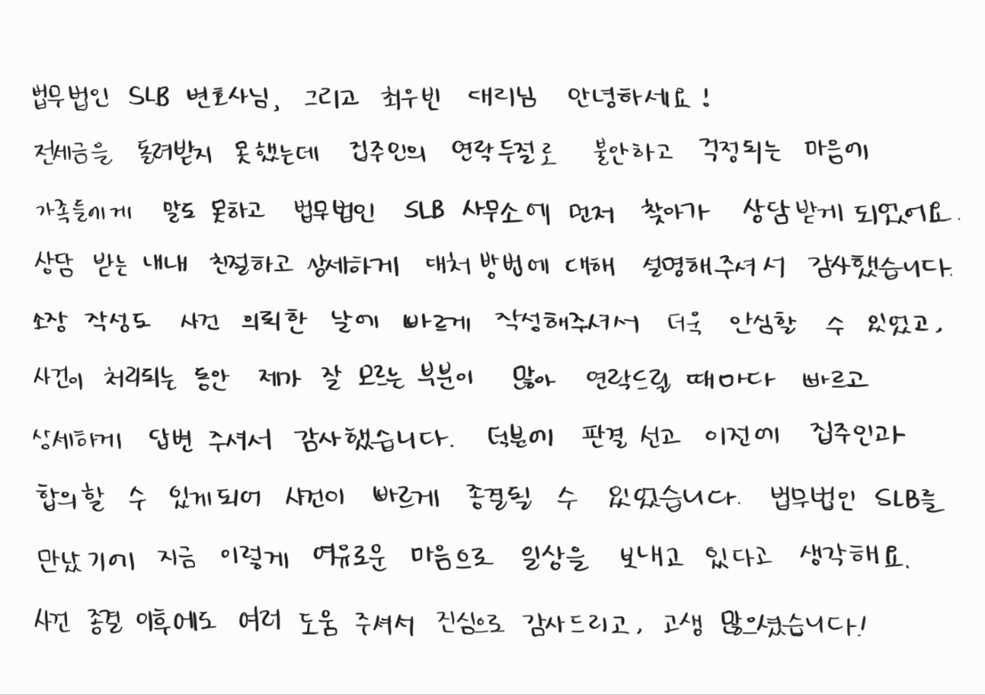 법무법인 SLB 변호사님, 그리고 최우빈 대리님 안녕하세요!
전세금을 돌려받지 못했는데 집주인의 연락두절로 불안하고 걱정되는 마음에
가족들에게 말도 못하고 법무법인 SLB 사무소에 먼저 찾아가 상담받게 되었어요.
상담 받는 내내 친절하고 상세하게 대처 방법에 대해 설명해주셔서 감사했습니다.
소장 작성도 사건 의뢰한 날에 빠르게 작성해주셔서 더욱 안심할 수 있었고,
사건이 처리되는 동안 제가 잘 모르는 부분이 많아 연락드릴 때마다 빠르고
상세하게 답변 주셔서 감사했습니다. 덕분에 판결 선고 이전에 집주인과
합의할 수 있게되어 사건이 빠르게 종결될 수 있었습니다. 법무법인 SLB를
만났기에 지금 이렇게 여유로운 마음으로 일상을 보내고 있다고 생각해요.
사건 종결 이후에도 여러 도움 주셔서 진심으로 감사드리고, 고생 많으셨습니다!